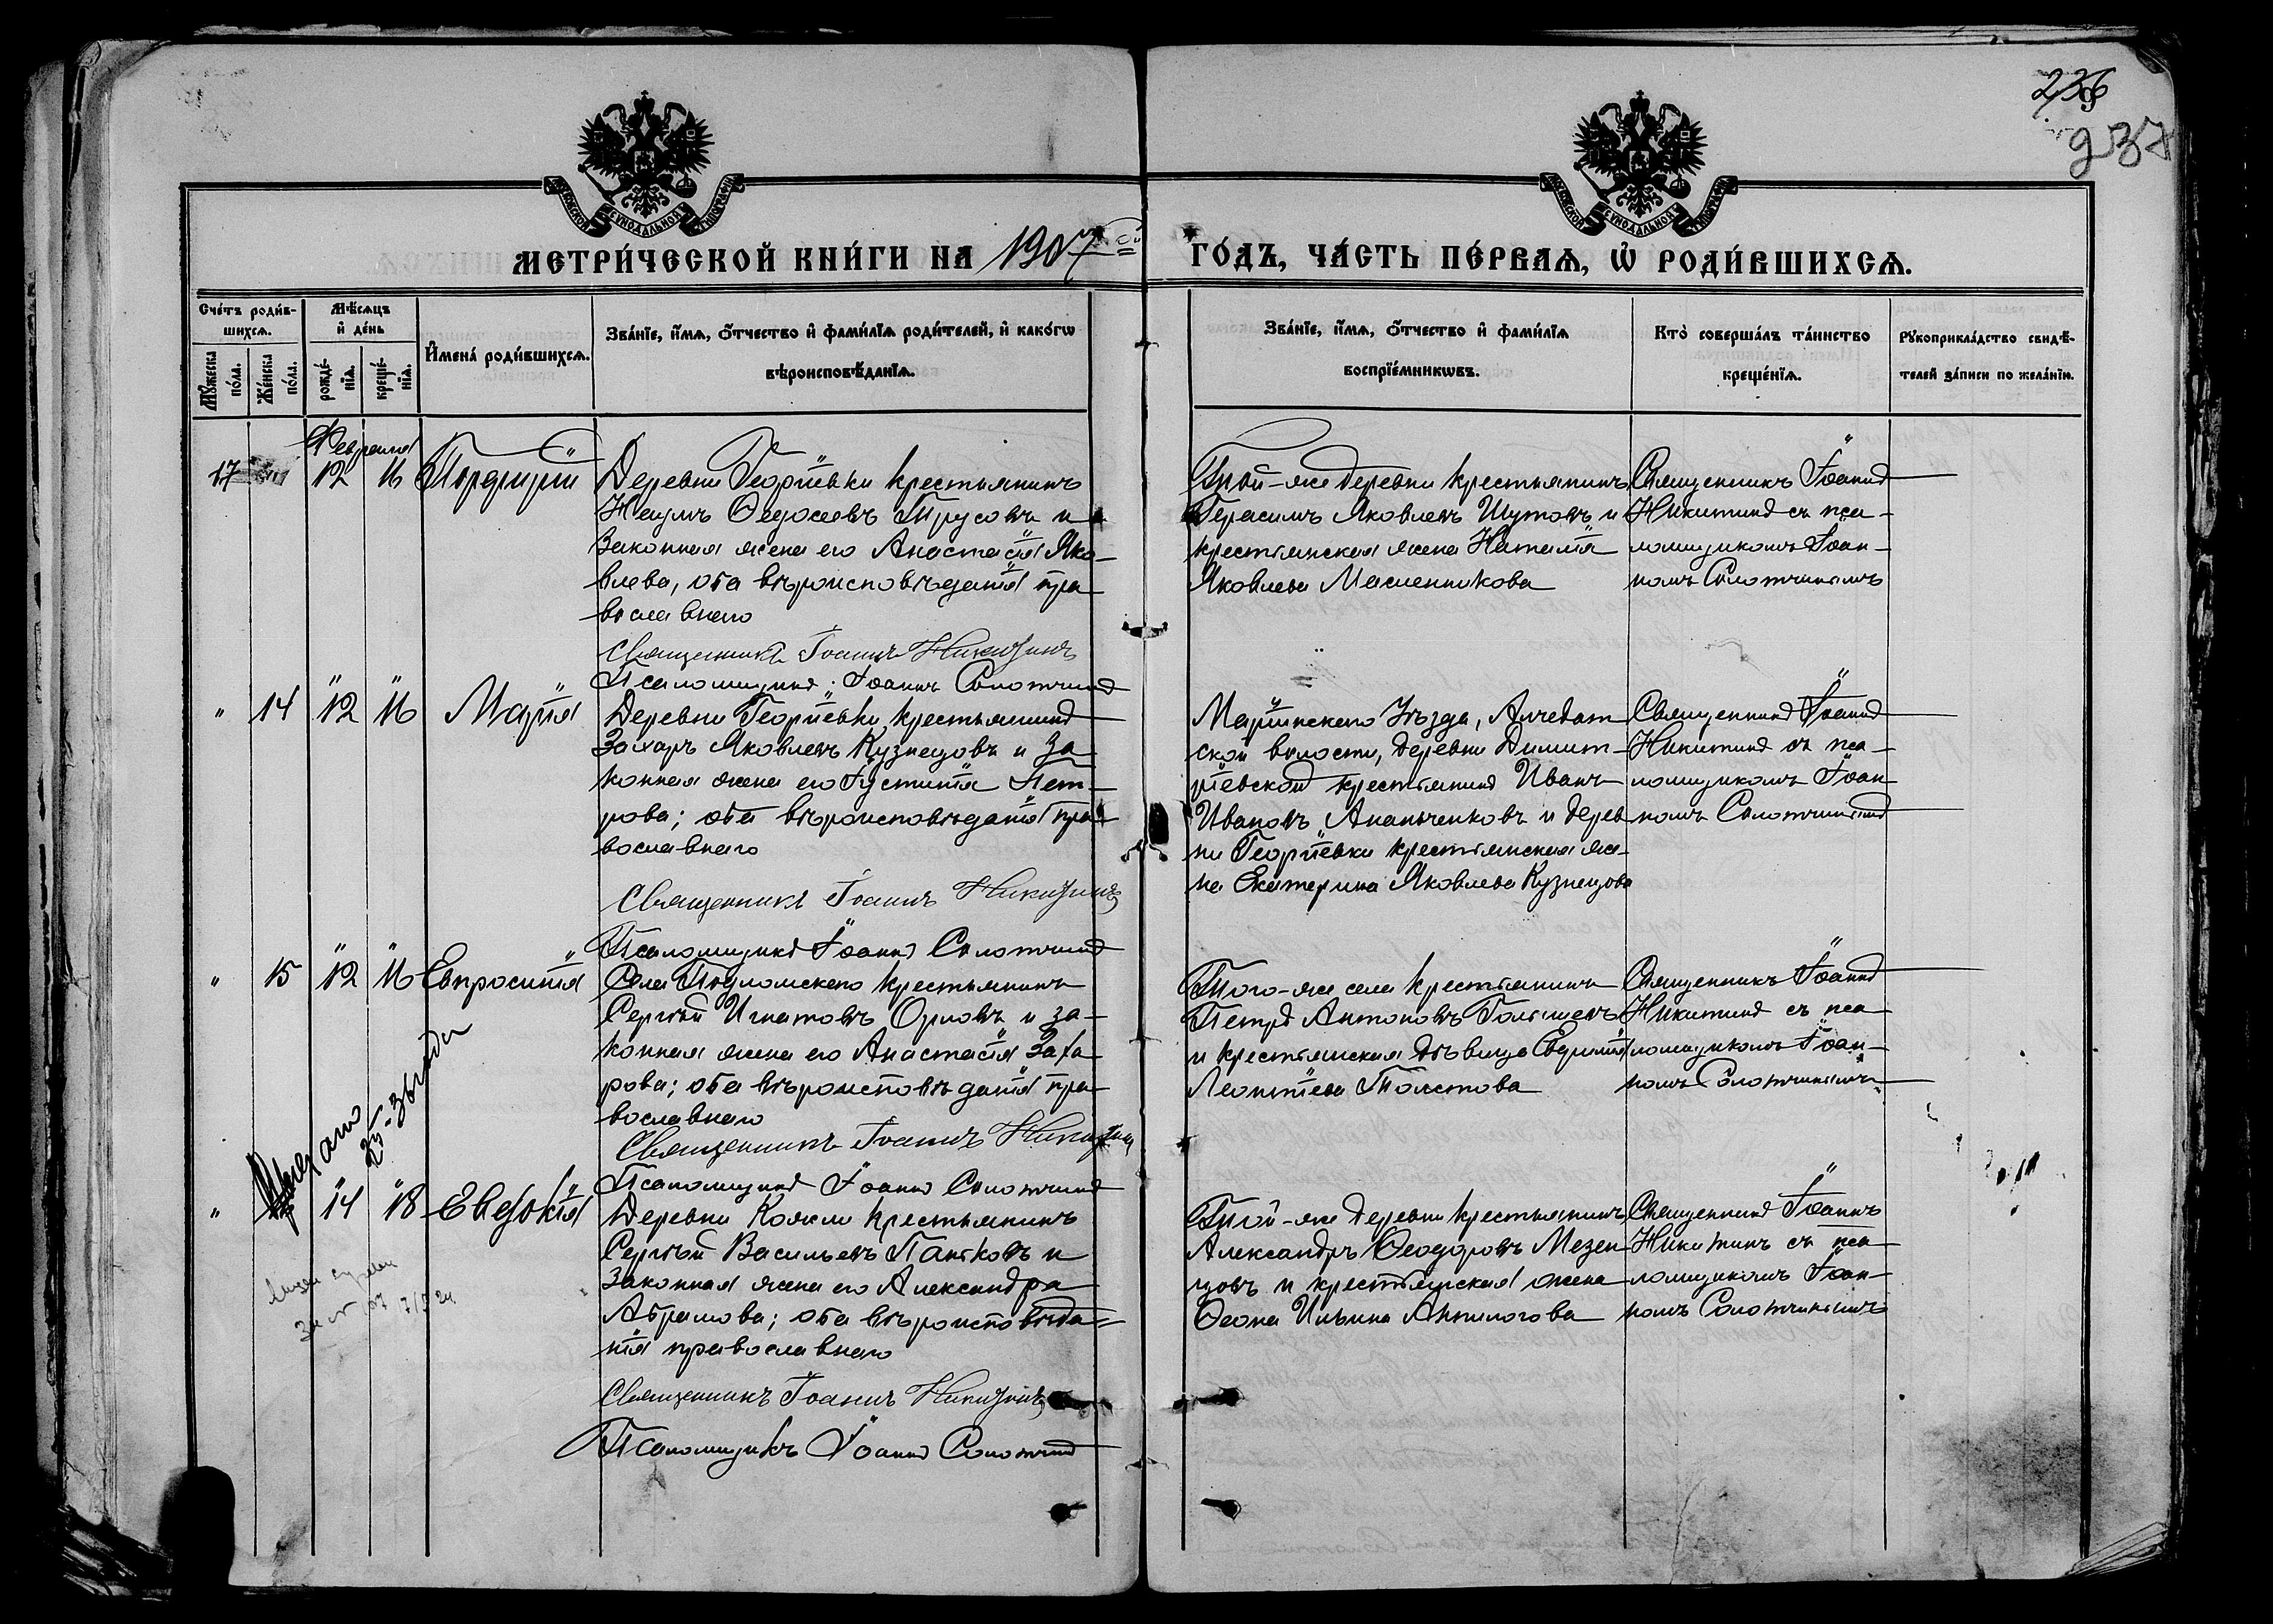 236
237
МЕТРИ́ЧЕСКОЙ КНИ́ГИ НА 1907 ГО́ДЪ, ЧА́СТЬ ПЕ́РВАЯ, Ѡ҆ РОДИ́ВШИХСЯ.
Сче́тъ роди́в-
шихся.
Мѣ́сяцъ
и҆ де́нь
Мꙋ́жеска
по́ла.
Же́нска
по́ла.
рожде́-
нїя.
креще́-
нїя.
И҆мена̀ роди́вшихся.
Зва́нїе, и҆́мя, ѻ҆́тчество и҆ фами́лїя роди́телей, и҆ како́гѡ
вѣроисповѣ́данїя.
Зва́нїе, и҆́мя, ѻ҆́тчество и҆ фами́лїя
воспрїе́мникѡвъ.
Кто̀ соверша́лъ та́инство
креще́нїя.
Рꙋкоприкла́дство свидѣ́-
телей за́писи по жела́нїю.
Февраля
17 12 16 Порфирій
Деревни Георгіевки крестьянинъ
Наумъ Ѳедосеевъ Трусовъ и
законная жена его Анастасія Яко-
влева, оба вѣроисповѣданія пра
вославнаго
Священникъ Іоаннъ Никитинъ
Псаломщикъ Іоаннъ Солотчинъ
Той-же деревни крестьянинъ
Герасимъ Яковлевъ Шутовъ и
крестьянская жена Наталія
Яковлева Масленникова
Священникъ Іоаннъ
Никитинъ съ пса-
ломщикомъ Іоан-
номъ Солотчинымъ
" 14 12 16 Марія
Деревни Георгіевки, крестьянинъ
Захаръ Яковлевъ Кузнецовъ и за
конная жена его Іустинія Пет-
рова; оба вѣроисповѣданія пра
вославнаго
Священникъ Іоаннъ Никитинъ
Псаломщикъ Іоаннъ Солотчинъ
Маріинскаго Уѣзда, Алчедат
ской волости, деревни Димит-
ріевской крестьянинъ Иванъ
Ивановъ Ананченковъ и дерев
ни Георгіевки крестьянская же-
на Екатерина Яковлева Кузнецова
Священникъ Іоаннъ
Никитинъ съ пса-
ломщикомъ Іоан
номъ Солотчинымъ
" 15 12 16 Евпросинія
Села Подломскаго крестьянинъ
Сергѣй Игнатовъ Орловъ и за-
конная жена его Анастасія Заха
рова; оба вѣроисповѣданія пра
вославнаго
Священникъ Іоаннъ Никитинъ
Псаломщикъ Іоаннъ Солотчинъ
Того-же села крестьянинъ
Петръ Антоновъ Голышевъ
и крестьянская дѣвица
Леонтіева Толстова
Священникъ Іоаннъ
Никитинъ съ пса
ломщикомъ Іоан-
номъ Солотчинымъ
" 14 18 Евдокія
Деревни крестьянинъ
Сергѣй Васильевъ Паньковъ и
законная жена его Александра
Абрамова; оба вѣроисповѣда-
нія православнаго
Священникъ Іоаннъ Никитинъ
Псаломщикъ Іоаннъ Солотчинъ
Той-же деревни крестьянинъ
Александръ Ѳеодоровъ Мезен
цовъ и крестьянская жена
Ильина Антилогова
Священникъ Іоаннъ
Никитинъ съ пса
ломщикомъ Іоан-
номъ Солотчинымъ